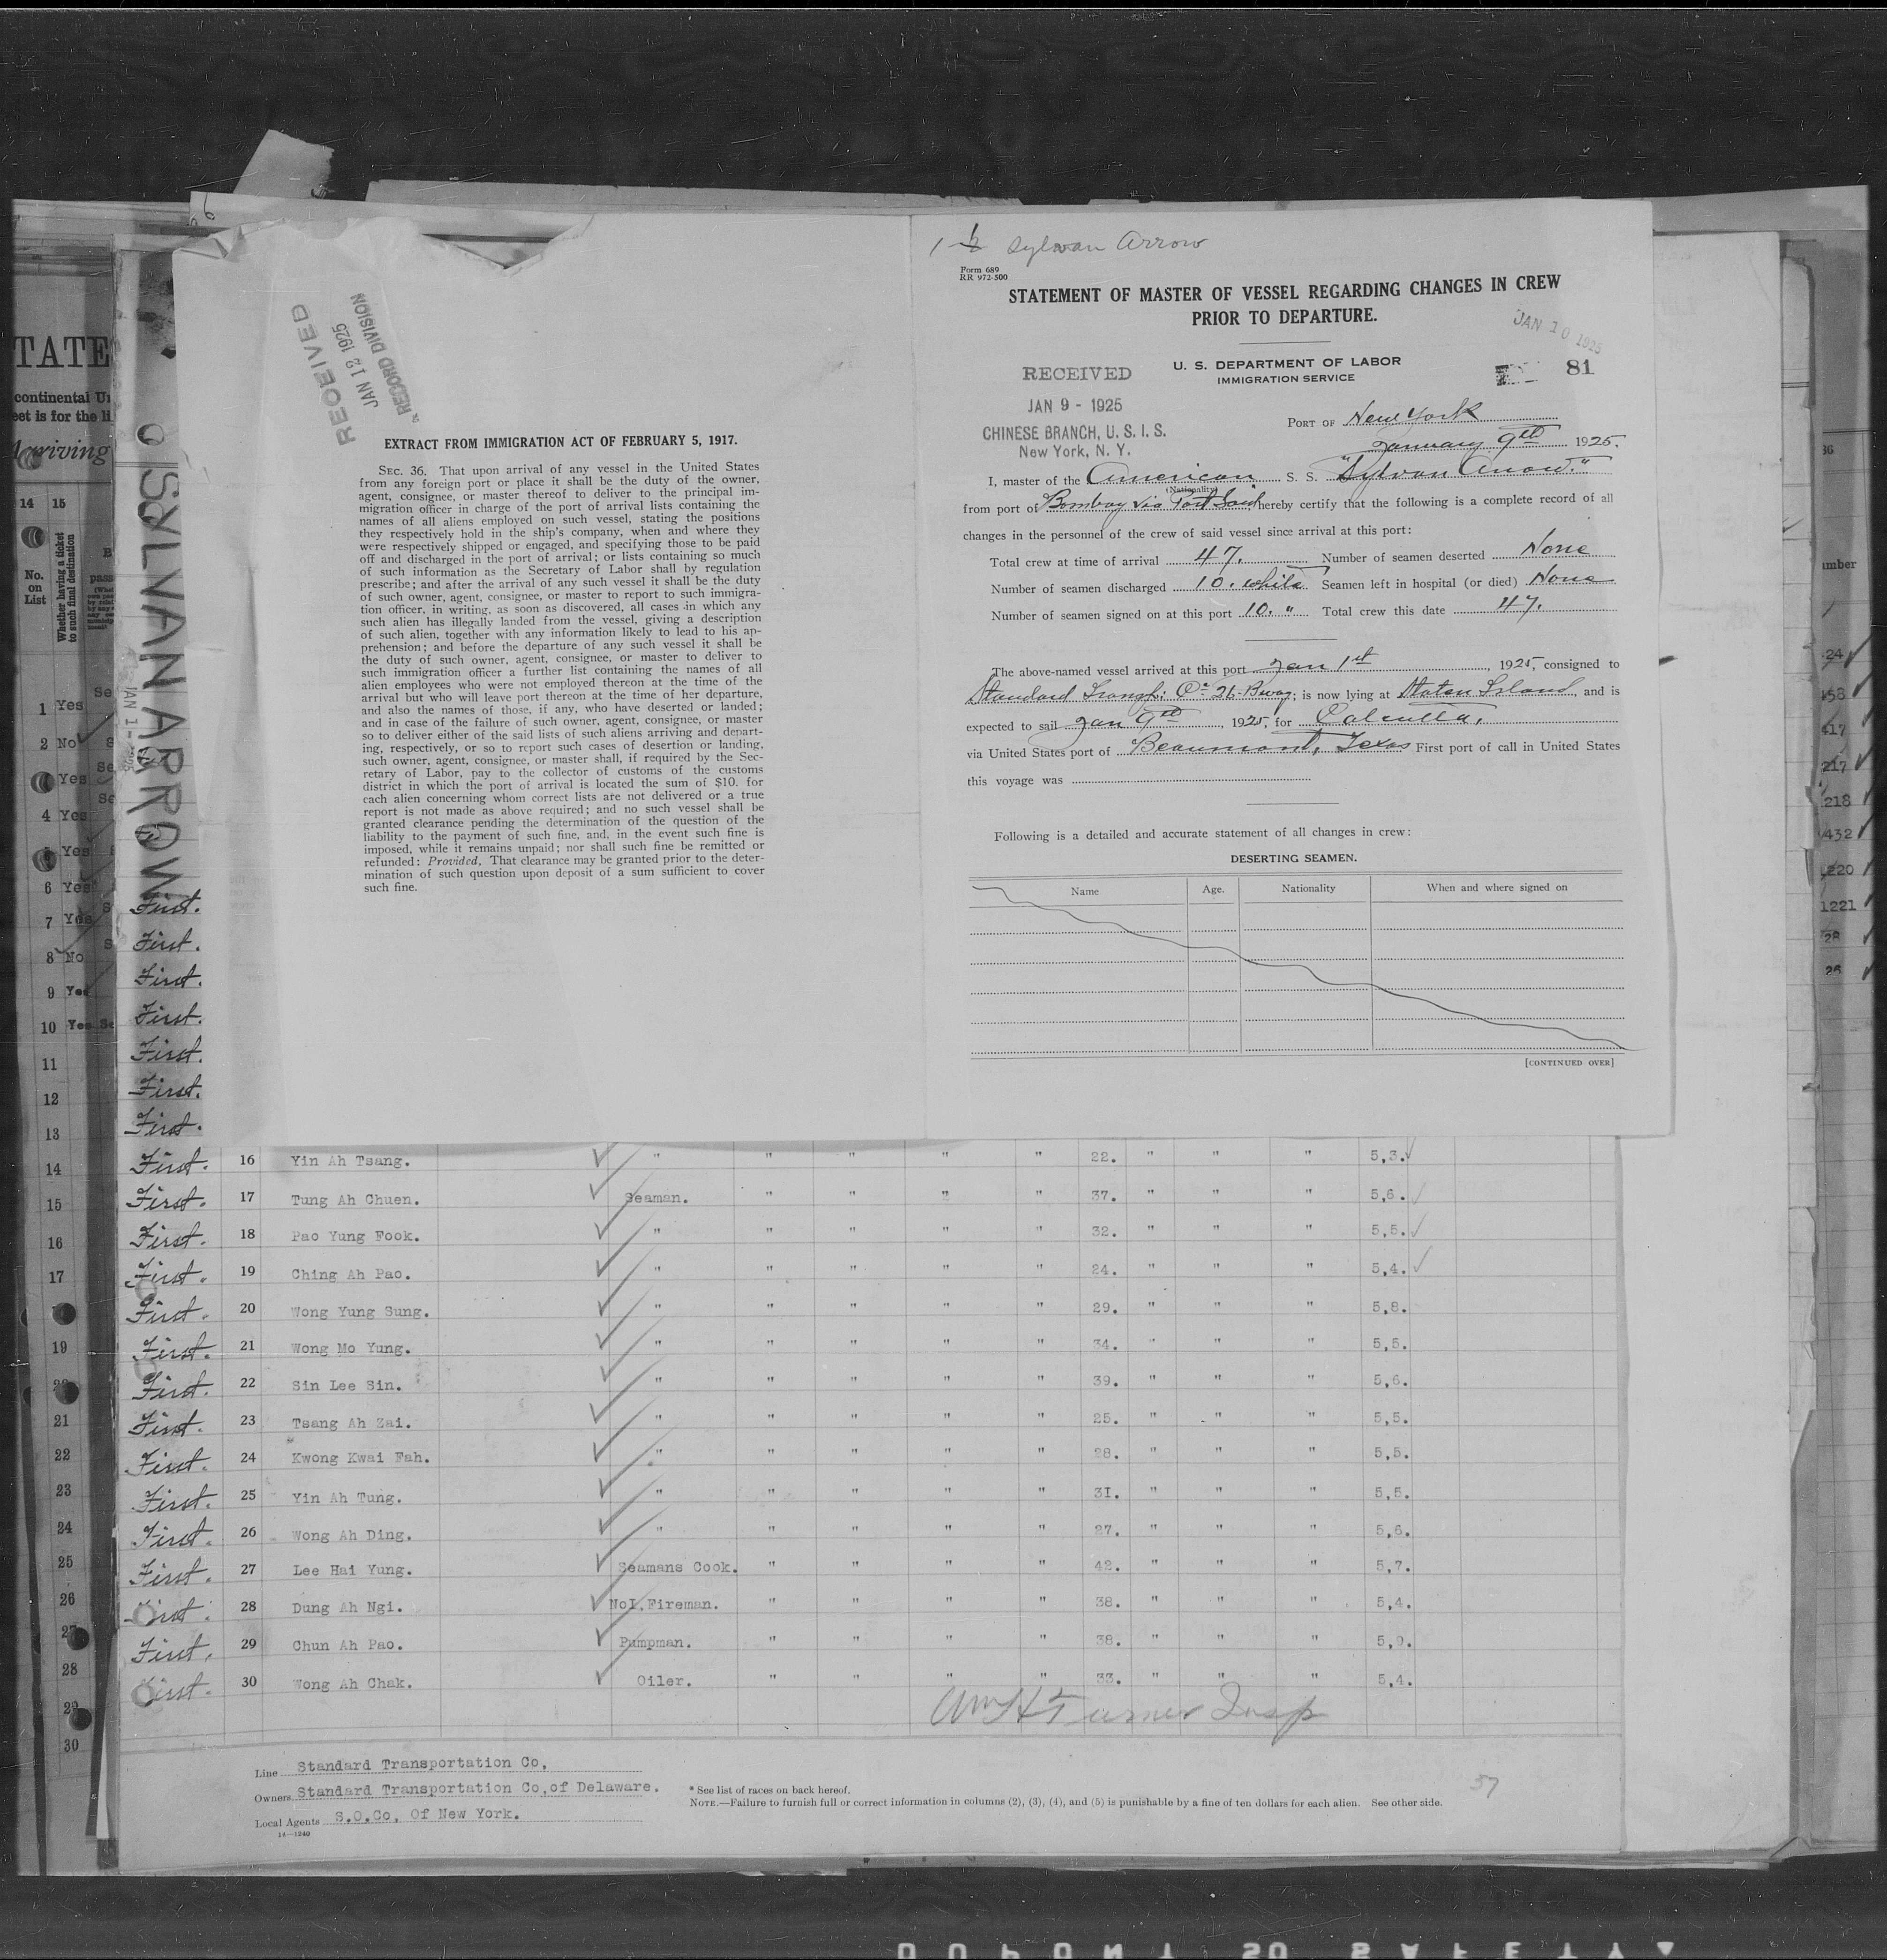 1 Sylvan Arrow
Form 689
RR 972-500
STATEMENT OF MASTER OF VESSEL REGARDING CHANGES IN CREW
PRIOR TO DEPARTURE.
JAN 10 1925
U. S. DEPARTMENT OF LABOR
IMMIGRATION SERVICE
81
RECEIVED
JAN 9 - 1925
CHINESE BRANCH, U. S. I. S.
New York, N. Y.
PORT OF New York
January 9th 1925.
I, master of the American S. S. "Sylvan Arrow."
(Nationality)
from port of Bombay via Port Said hereby certify that the following is a complete record of all
changes in the personnel of the crew of said vessel since arrival at this port:
Total crew at time of arrival 47. Number of seamen deserted None
Number of seamen discharged 10. white Seamen left in hospital (or died) None
Number of seamen signed on at this port 10. " Total crew this date 47.
The above-named vessel arrived at this port Jan 1st, 1925, consigned to
Standard Transp. Co. 26 Bway; is now lying at Staten Island, and is
expected to sail Jan 9th, 1925, for Calcutta.
via United States port of Beaumont, Texas First port of call in United States
this voyage was
Following is a detailed and accurate statement of all changes in crew:
DESERTING SEAMEN.
Name Age. Nationality When and where signed on
[CONTINUED OVER]
RECEIVED
JAN 12 1925
RECORD DIVISION
EXTRACT FROM IMMIGRATION ACT OF FEBRUARY 5, 1917.
SEC. 36. That upon arrival of any vessel in the United States
from any foreign port or place it shall be the duty of the owner,
agent, consignee, or master thereof to deliver to the principal im-
migration officer in charge of the port of arrival lists containing the
names of all aliens employed on such vessel, stating the positions
they respectively hold in the ship's company, when and where they
were respectively shipped or engaged, and specifying those to be paid
off and discharged in the port of arrival; or lists containing so much
of such information as the Secretary of Labor shall by regulation
prescribe; and after the arrival of any such vessel it shall be the duty
of such owner, agent, consignee, or master to report to such immigra-
tion officer, in writing, as soon as discovered, all cases in which any
such alien has illegally landed from the vessel, giving a description
of such alien, together with any information likely to lead to his ap-
prehension; and before the departure of any such vessel it shall be
the duty of such owner, agent, consignee, or master to deliver to
such immigration officer a further list containing the names of all
alien employees who were not employed thereon at the time of the
arrival but who will leave port thereon at the time of her departure,
and also the names of those, if any, who have deserted or landed;
and in case of the failure of such owner, agent, consignee, or master
so to deliver either of the said lists of such aliens arriving and depart-
ing, respectively, or so to report such cases of desertion or landing,
such owner, agent, consignee, or master shall, if required by the Sec-
retary of Labor, pay to the collector of customs of the customs
district in which the port of arrival is located the sum of $10. for
each alien concerning whom correct lists are not delivered or a true
report is not made as above required; and no such vessel shall be
granted clearance pending the determination of the question of the
liability to the payment of such fine, and, in the event such fine is
imposed, while it remains unpaid; nor shall such fine be remitted or
refunded: Provided, That clearance may be granted prior to the deter-
mination of such question upon deposit of a sum sufficient to cover
such fine.
SS SYLVAN ARROW
JAN 1 - 1925
First.
First.
First.
First.
First.
First.
First.
First. 16 Yin Ah Tsang. " " " " " 22. " " " 5,3.
First. 17 Tung Ah Chuen. Seaman. " " " " 37. " " " 5,6.
First. 18 Pao Yung Fook. " " " " " 32. " " " 5,5.
First. 19 Ching Ah Pao. " " " " " 24. " " " 5,4.
First. 20 Wong Yung Sung. " " " " " 29. " " " 5,8.
First. 21 Wong Mo Yung. " " " " " 34. " " " 5,5.
First. 22 Sin Lee Sin. " " " " " 39. " " " 5,6.
First. 23 Tsang Ah Zai. " " " " " 25. " " " 5,5.
First. 24 Kwong Kwai Fah. " " " " " 28. " " " 5,5.
First. 25 Yin Ah Tung. " " " " " 31. " " " 5,5.
First. 26 Wong Ah Ding. " " " " " 27. " " " 5,6.
First. 27 Lee Hai Yung. Seamans Cook. " " " " 42. " " " 5,7.
First. 28 Dung Ah Ngi. No1.Fireman. " " " " 38. " " " 5,4.
First. 29 Chun Ah Pao. Pumpman. " " " " 38. " " " 5,9.
First. 30 Wong Ah Chak. Oiler. " " " " 33. " " " 5,4.
Wm H Turner Insp
Line Standard Transportation Co,
Owners Standard Transportation Co,of Delaware.
Local Agents S.O.Co, Of New York.
14—1240
* See list of races on back hereof.
NOTE.—Failure to furnish full or correct information in columns (2), (3), (4), and (5) is punishable by a fine of ten dollars for each alien. See other side.
57
TATE
continental U
eet is for the li
Arriving
14 15
No.
on
List
Whether having a ticket
to such final destination
1 Yes
2 No
Yes
4 Yes
Yes
6 Yes
7 Yes
8 No
9 Yes
10 Yes
11
12
13
14
15
16
17
19
21
22
23
24
25
26
27
28
29
30
36
umber
24
458
417
217
218
432
1220
1221
28
26